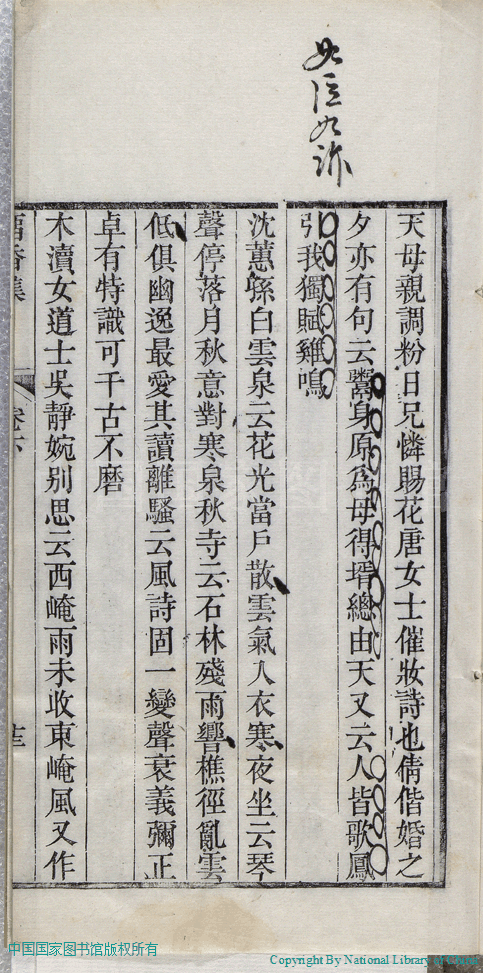 如泣如訴
天母親調粉日兄憐賜花唐女士催妝詩也倩偕婚之
夕亦有句云鬻身原爲母得壻總由天又云人皆歌鳳
引我獨賦雞鳴
沈蕙孫白雲泉云花光當戶散雲氣入衣寒夜坐云琴
聲停落月秋意對寒泉秋寺云石林殘雨響樵徑亂雲
低俱幽逸最愛其讀離騷云風詩固一變聲哀義彌正
卓有特識可千古不磨
木瀆女道士吳靜婉别思云西崦雨未收東崦風又作
香集
卷下
中国国家图书馆版权所有
Copyright By National Library of China